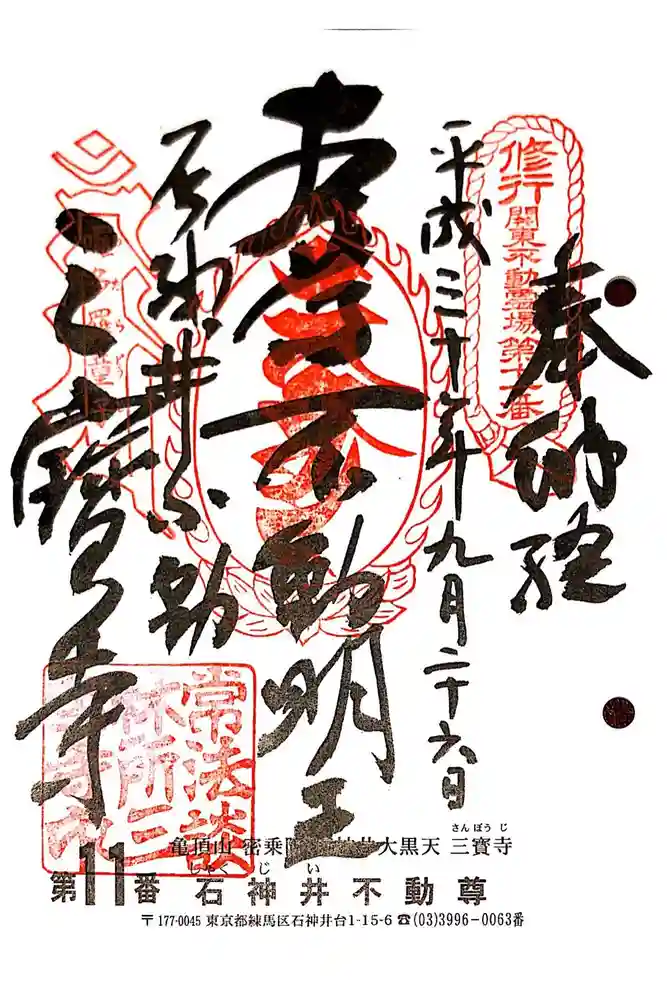 奉納経
修行
関東不動霊場第十一番
平成三十年九月二十六日
本尊不動明王
石神井不動
三寳寺
常法談
林所三
亀頂山 密乗 大黒天 三寳寺
さんぼうじ
しゃくじい
第11番 石神井不動尊
〒177-0045 東京都練馬区石神井台1-15-6 ☎(03)3996-0063番